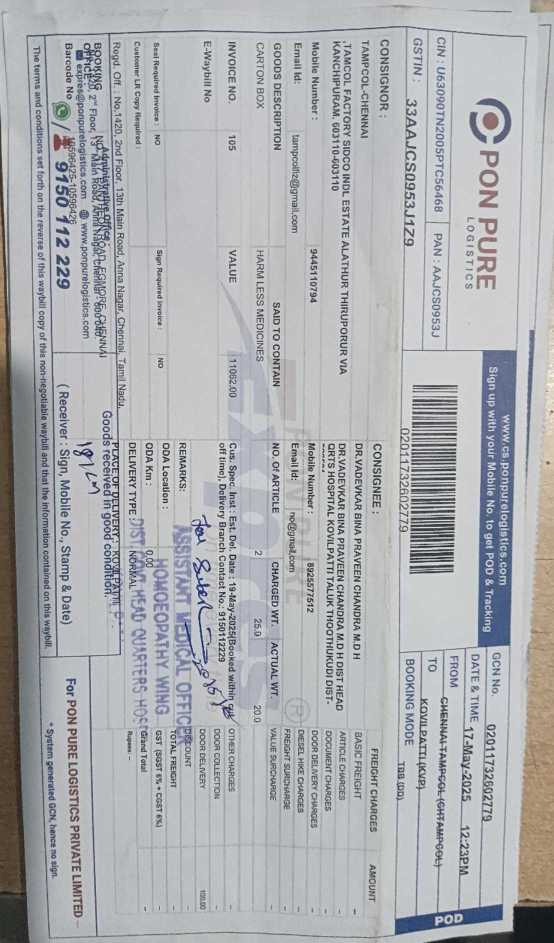 PON PURE
LOGISTICS
www.cs.ponpurelogistics.com
Sign up with your Mobile No. to get POD & Tracking
CIN : U63090TN2005PTC56468 PAN : AAJCS0953J
GSTIN : 33AAJCS0953J1Z9
02011732602779
GCN No. 02011732602779
DATE & TIME 17-May-2025 12:23PM
FROM CHENNAI-TAMPCOL (CHTAMPCOL)
TO KOVILPATTI (KVP)
BOOKING MODE TBB (DD)
POD
CONSIGNOR :
TAMPCOL-CHENNAI
,TAMCOL FACTORY SIDCO INDL ESTATE ALATHUR THIRUPORUR VIA
KANCHIPURAM. 603110-603110
Mobile Number : 9445110794
Email Id: tampcolfiz@gmail.com
CONSIGNEE :
DR.VADEVKAR BINA PRAVEEN CHANDRA M.D H
DR.VADEVKAR BINA PRAVEEN CHANDRA M.D H DIST HEAD
QRTS HOSPITAL KOVILPATTI TALUK THOOTHUKUDI DIST-
Mobile Number : 8925577512
Email Id: no@gmail.com
GOODS DESCRIPTION SAID TO CONTAIN NO. OF ARTICLE CHARGED WT. ACTUAL WT.
CARTON BOX HARM LESS MEDICINES 2 25.0 20.0
INVOICE NO. 105 VALUE 11062.00
E-Waybill No
Cus. Spec. Inst : Est. Del. Date : 19-May-2025(Booked within cut
off time), Delivery Branch Contact No.: 9150112229
Seal Required Invoice : NO Sign Required Invoice : NO
Customer LR Copy Required :
REMARKS:
ODA Location :
ODA Km : 0.00
DELIVERY TYPE : NORMAL
PLACE OF DELIVERY : KOVILPATTI
FREIGHT CHARGES AMOUNT
BASIC FREIGHT -
ARTICLE CHARGES -
DOCUMENT CHARGES -
DOOR DELIVERY CHARGES -
DIESEL HIKE CHARGES -
FREIGHT SURCHARGE -
VALUE SURCHARGE -
OTHER CHARGES -
DOOR COLLECTION -
DOOR DELIVERY 100.00
TOTAL FREIGHT -
GST (SGST 6% + CGST 6%) -
Grand Total -
Rupees -
ASSISTANT MEDICAL OFFICER
HOMOEOPATHY WING
DIST HEAD QUARTERS HOSP
Regd. Off. : No,1420, 2nd Floor, 13th Main Road, Anna Nagar, Chennai, Tamil Nadu.
Administrative Office :
BOOKING
2nd Floor, 13th Main Road, Anna Nagar, Chennai - 600 040
expres@ponpurelogistics.com www.ponpurelogistics.com
Barcode No 10596425-10596426
9150 112 229
Goods received in good condition.
( Receiver : Sign, Mobile No., Stamp & Date)
For PON PURE LOGISTICS PRIVATE LIMITED
* System generated GCN, hence no sign.
The terms and conditions set forth on the reverse of this waybill copy of this non-negotiable waybill and that the information contained on this waybill.